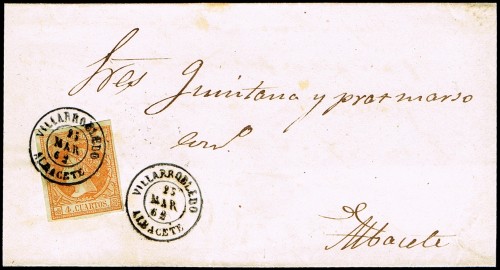 Sres Quintana y
VILLARROBLEDO
25
MAR
62
ALBACETE
4 CUARTOS.
VILLARROBLEDO
25
MAR
62
ALBACETE
Albacete